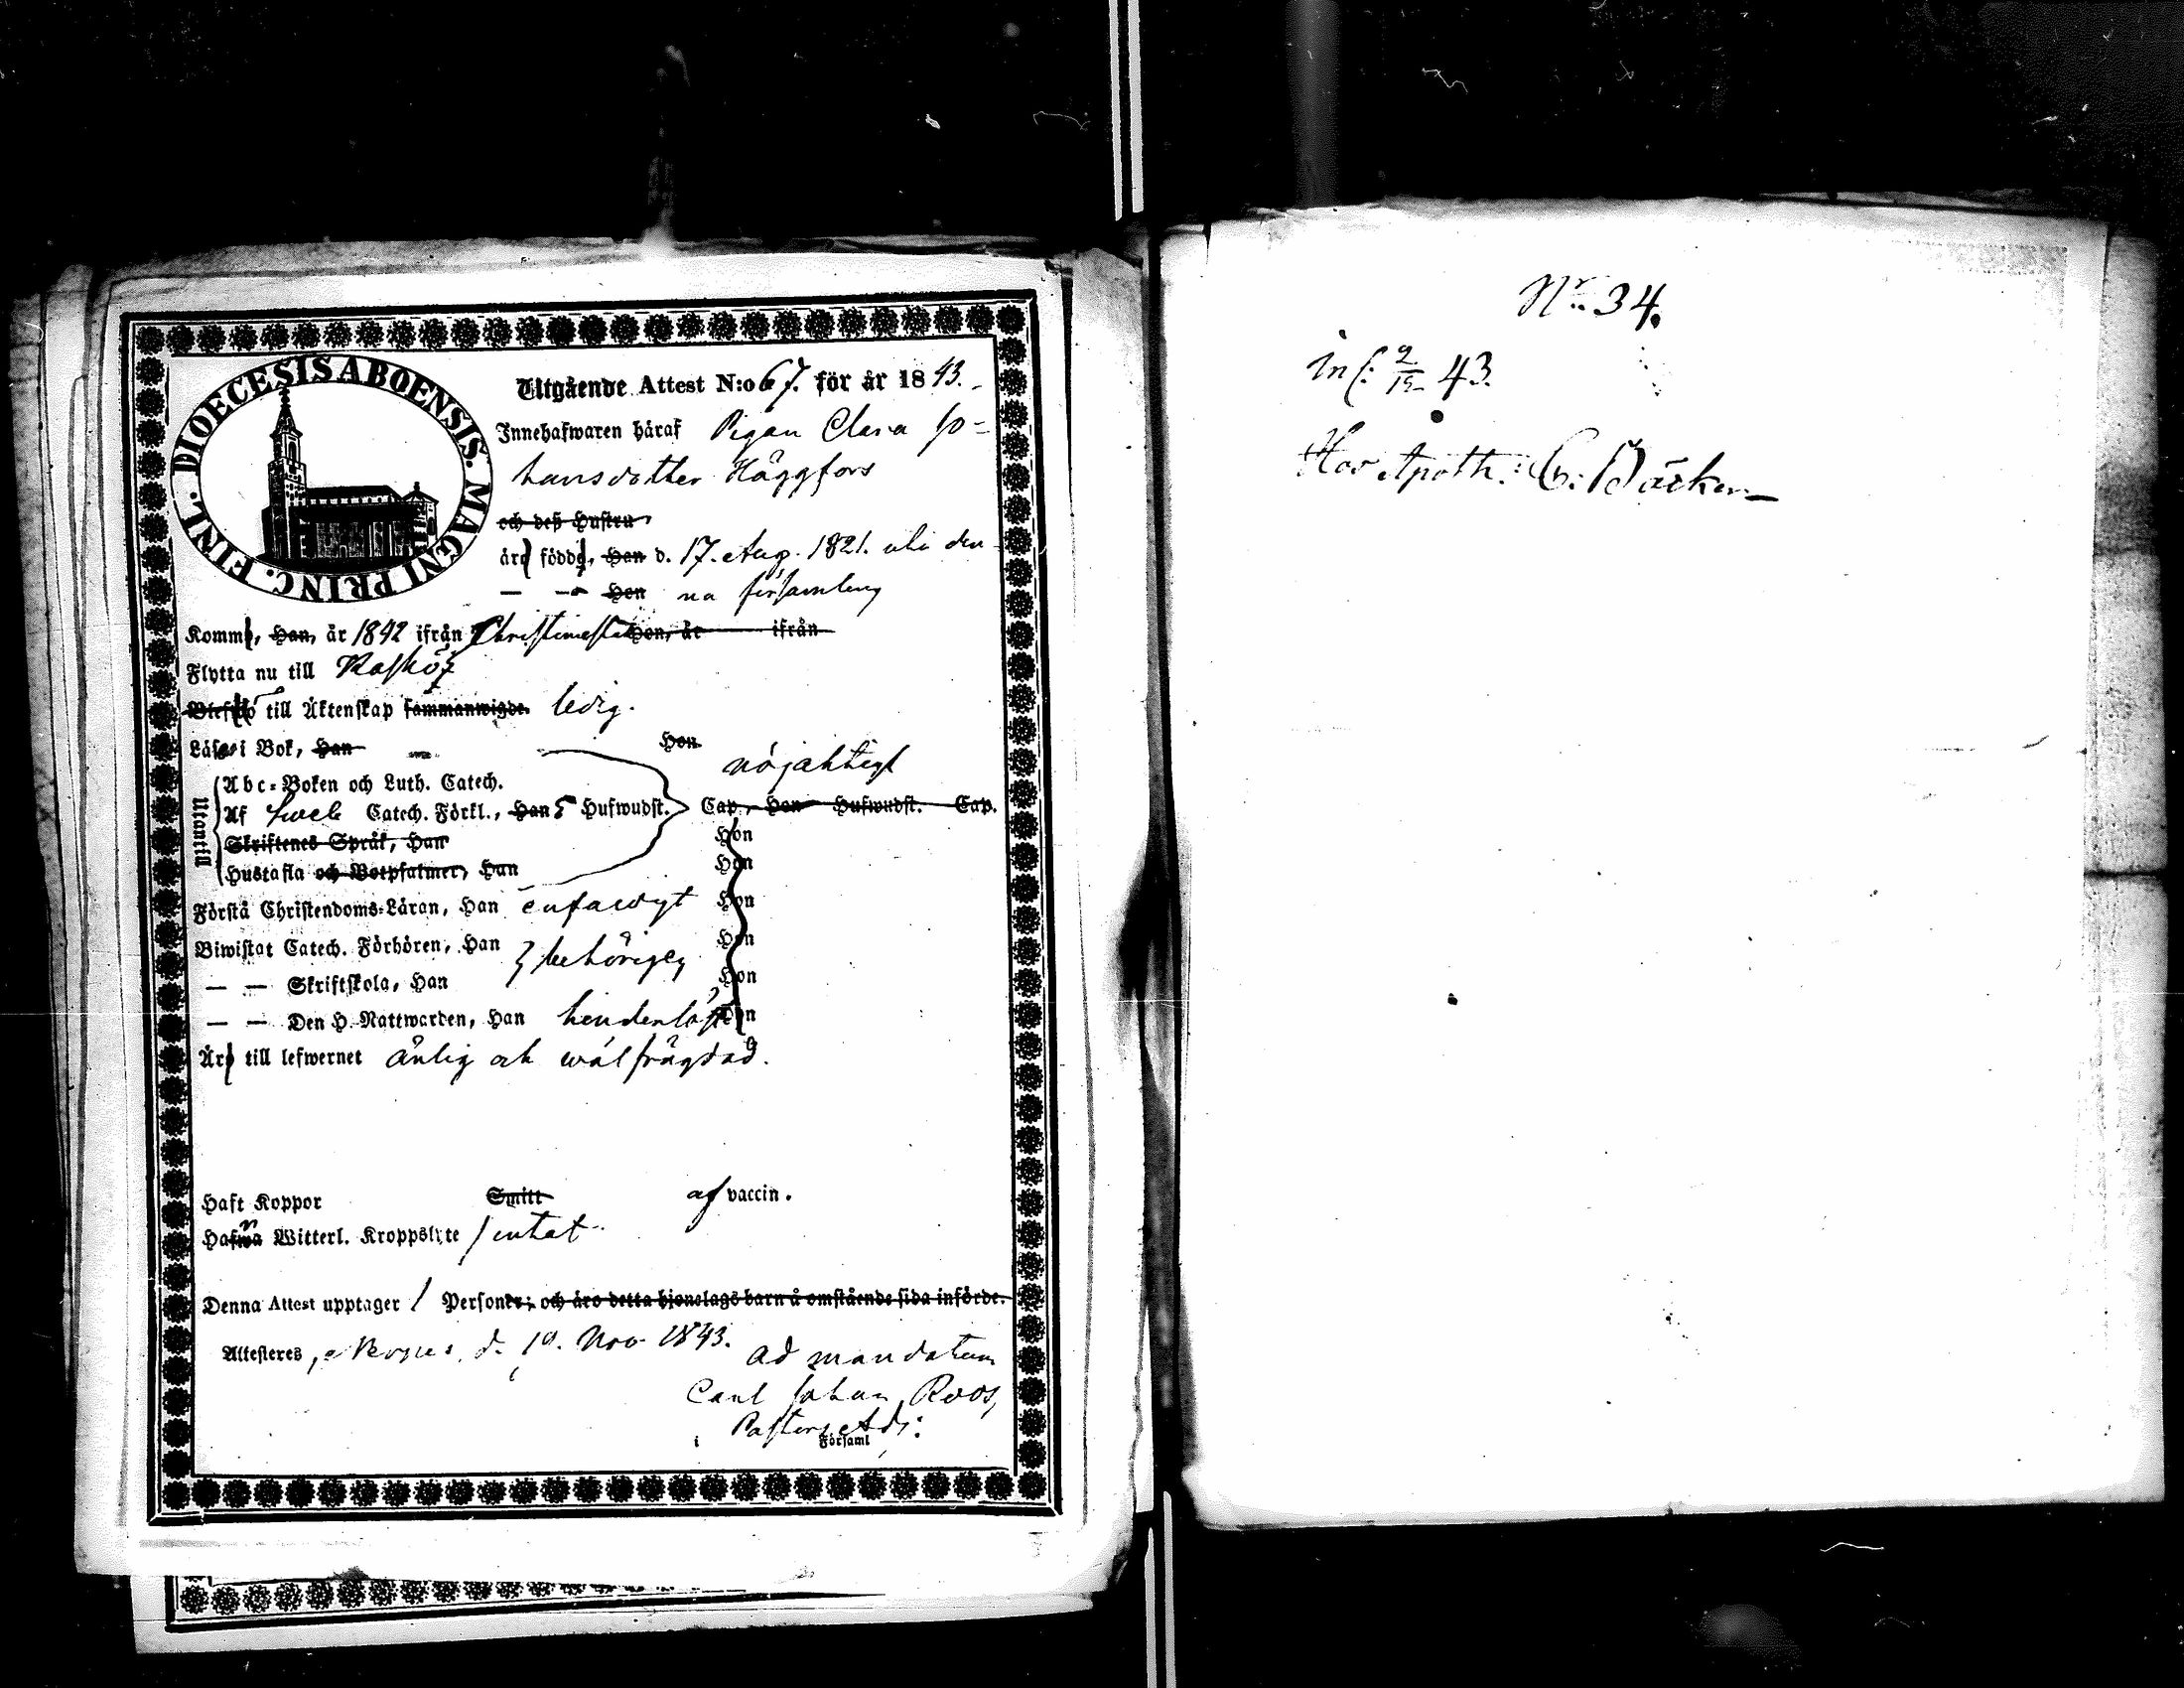 DIOECESIS ABOENSIS. MAGNI PRINC. FINL.
Utgående Attest N:o 67. för år 1843.
Innehafwaren häraf Pigan Clara Jo-
hansdotter Häggfors
och deß Hustru
äro födde, Han d. 17. Aug. 1821. uti den
— — Hon na församling
Komme, Han, år 1842 ifrån Christinestad Hon, år ifrån
Flytta nu till Kaskö
till Äktenskap sammanwigde. ledig.
Läsa i Bok, Han — Hon nöjaktigt
Utantill
Abc-Boken och Luth. Catech.
Af Sveb Catech. Förkl., Han 5 Hufwudst. Cap, Hon Hufwudst. Cap.
Skriftenes Språk, Han Hon
Hustafla och Botpsalmer, Han Hon
Förstå Christendoms-Läran, Han enfaldigt Hon
Biwistat Catech. Förhören, Han behörigen Hon
— — Skriftskola, Han Hon
— — Den H. Nattwarden, Han Hon
Äro till lefwernet ärlig och wälfrägdad.
Haft Koppor Smitt af vaccin.
Hafwa Witterl. Kroppslyte intet
Denna Attest upptager 1 Personer; och äro detta hjonelags barn å omstående sida införde.
Attesteres, d. 10. Nov 1843. Ad mandatum
Carl Johan Roos,
Pastors Adj:
i Församl
Nr 34.
inl: 9/12 43.
Hos Apoth.: C: Bäcker